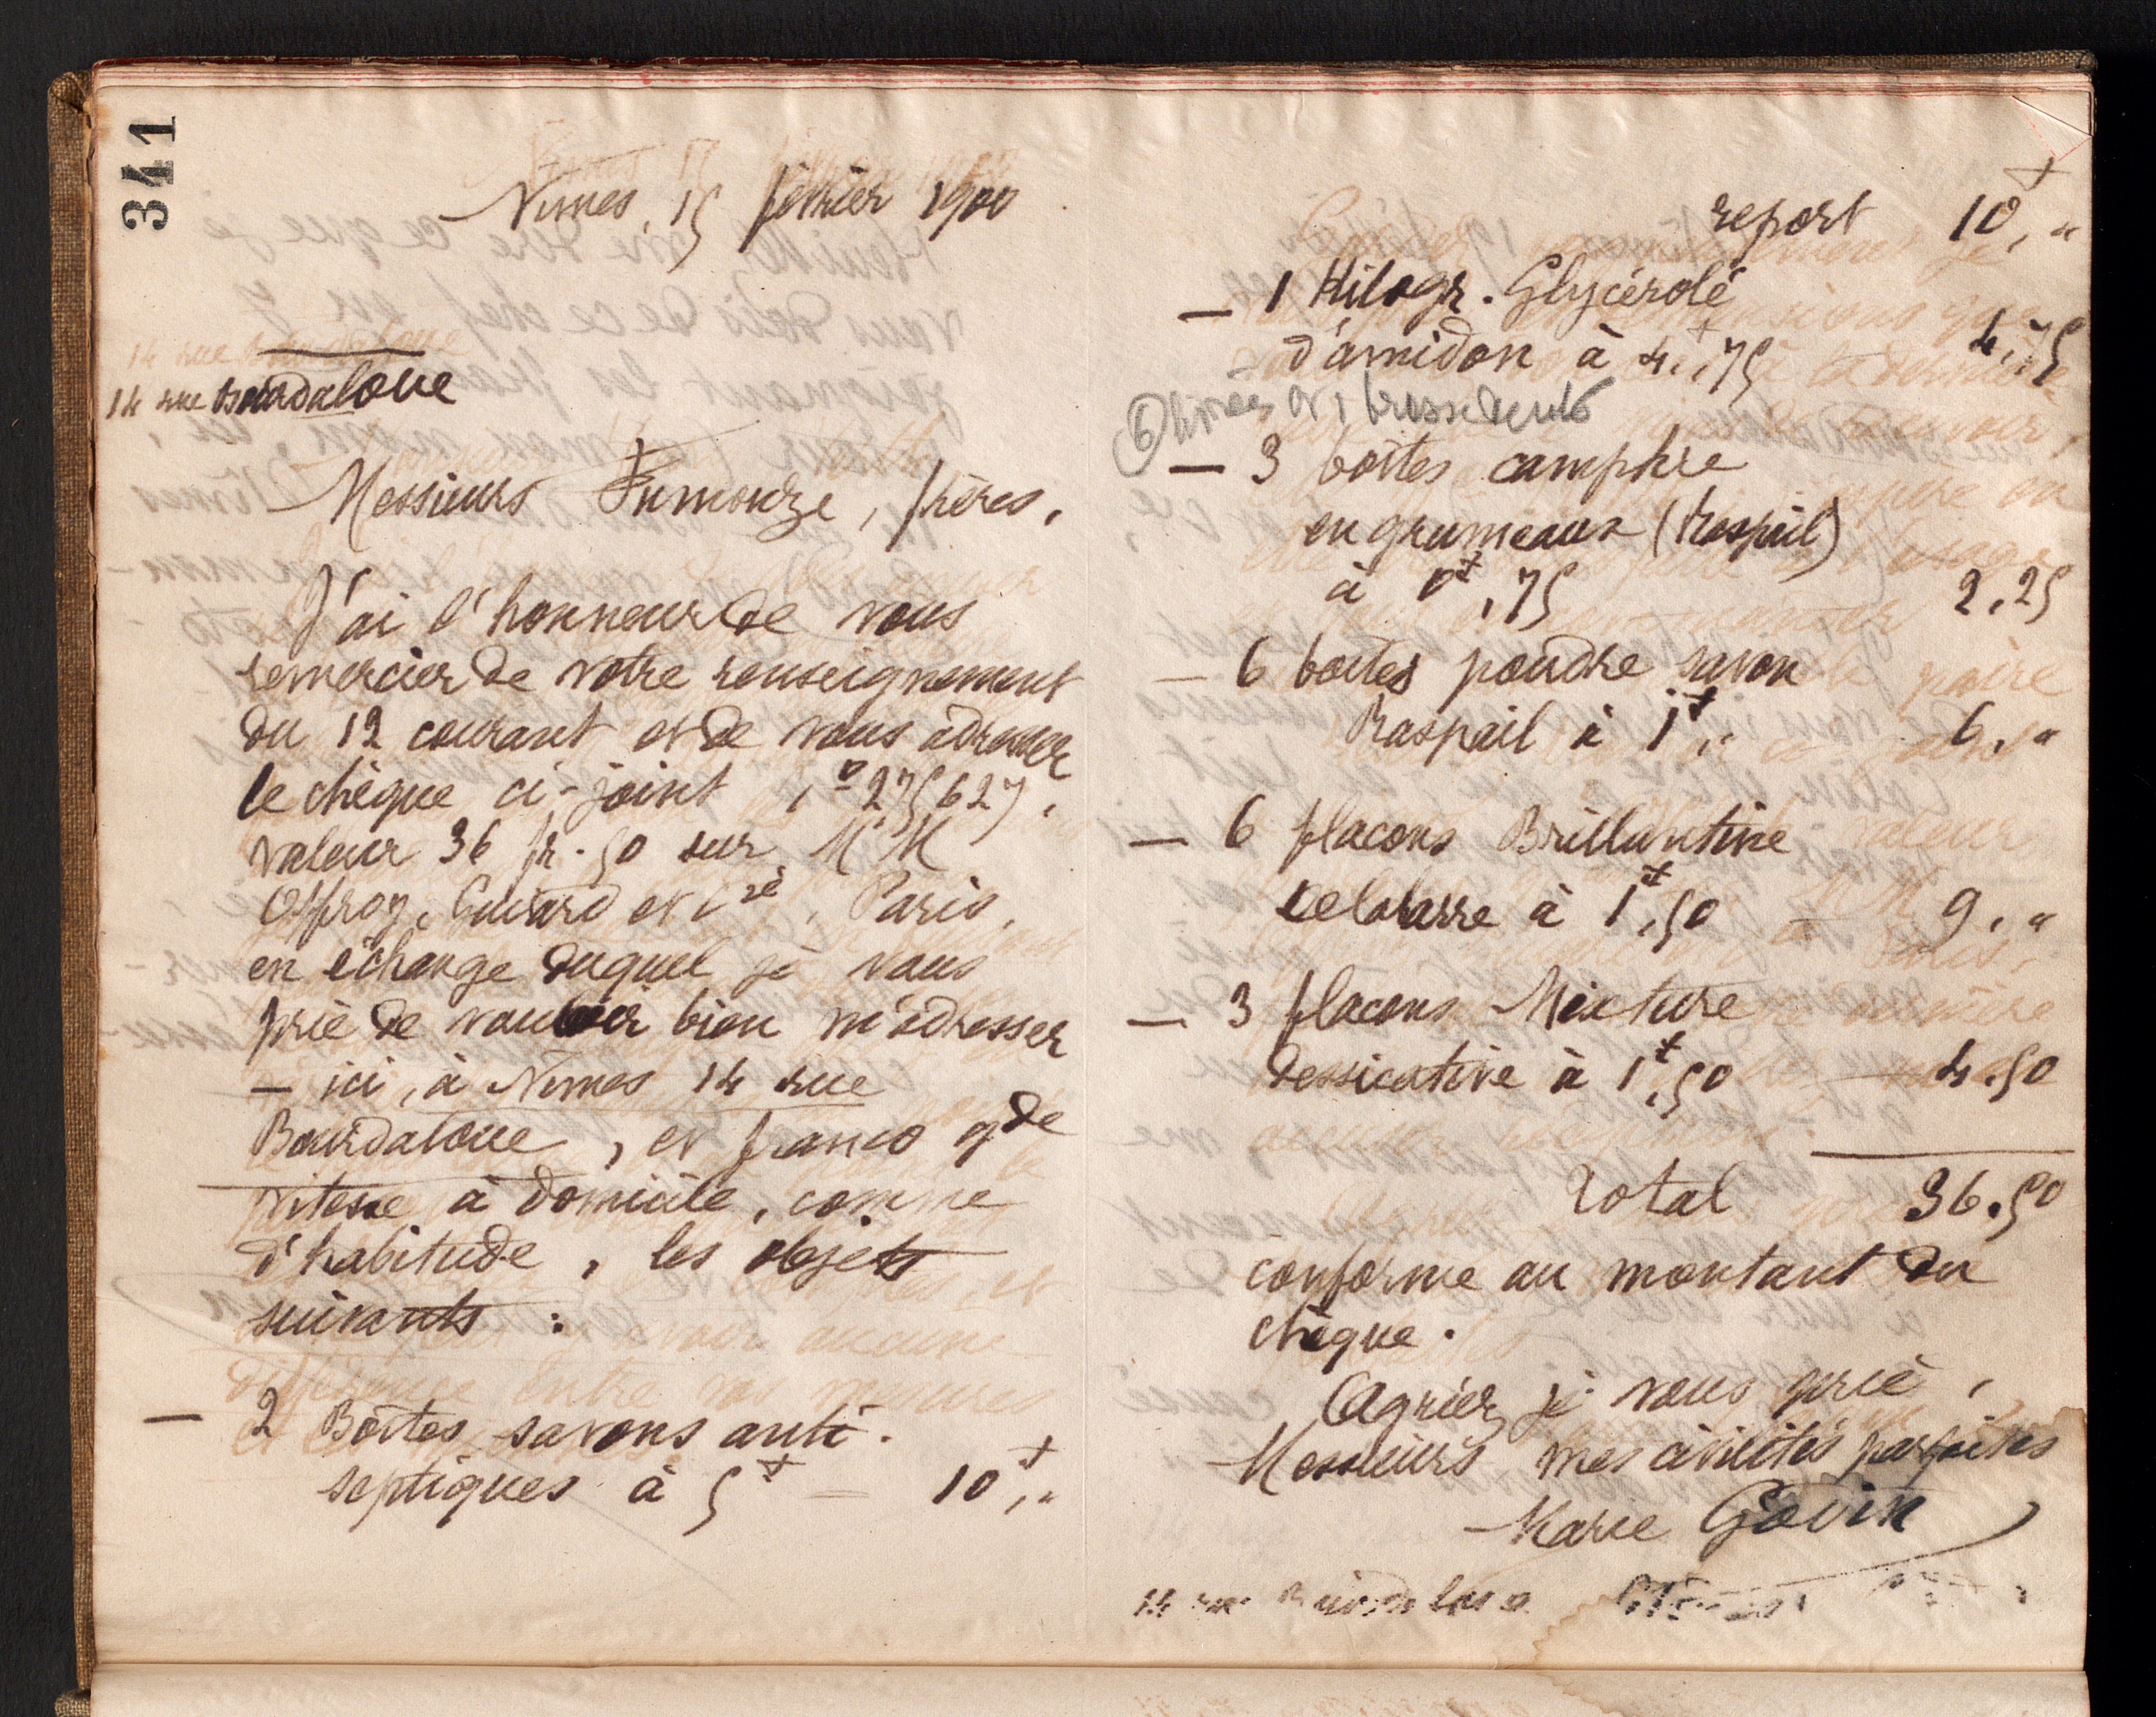 341
Nimes, 15 février 1900
14 rue Bourdaloue
Messieurs Fumouze, frères,
J'ai l'honneur de vous
remercier de votre renseignement
du 12 courant et de vous adresser
le chèque ci-joint, nº 275627,
valeur 36 fr. 50 sur MM
Offroy, Guiard et Cie, Paris,
en échange duquel je vous
prie de vouloir bien m'adresser
— ici, à Nimes 14 rue
Bourdaloue, et franco gde
vitesse à domicile, comme
d'habitude, les objets
suivants :
— 2 Boîtes savons anti-
septiques à 5f = 10f, "
report 10f, "
— 1 Kilogr. Glycérolé
d'amidon à 4f,75 4,75
— 3 boîtes camphre
en grumeaux (Raspail)
à 0f,75 2,25
— 6 boîtes poudre savon
Raspail à 1f," 6, "
— 6 flacons Brillantine
Delabarre à 1f,50 = 9, "
— 3 flacons Mixture
dessicative à 1f,50 — 4.50
Total 36.50
conforme au montant du
chèque.
Agréez, je vous prie,
Messieurs mes civilités parfaites
Marie Govin
14 rue Bourdaloue